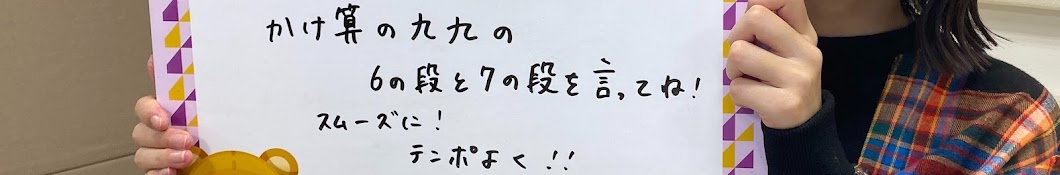 かけ算の九九の
6の段と7の段を言ってね!
スムーズに!
テンポよく!!